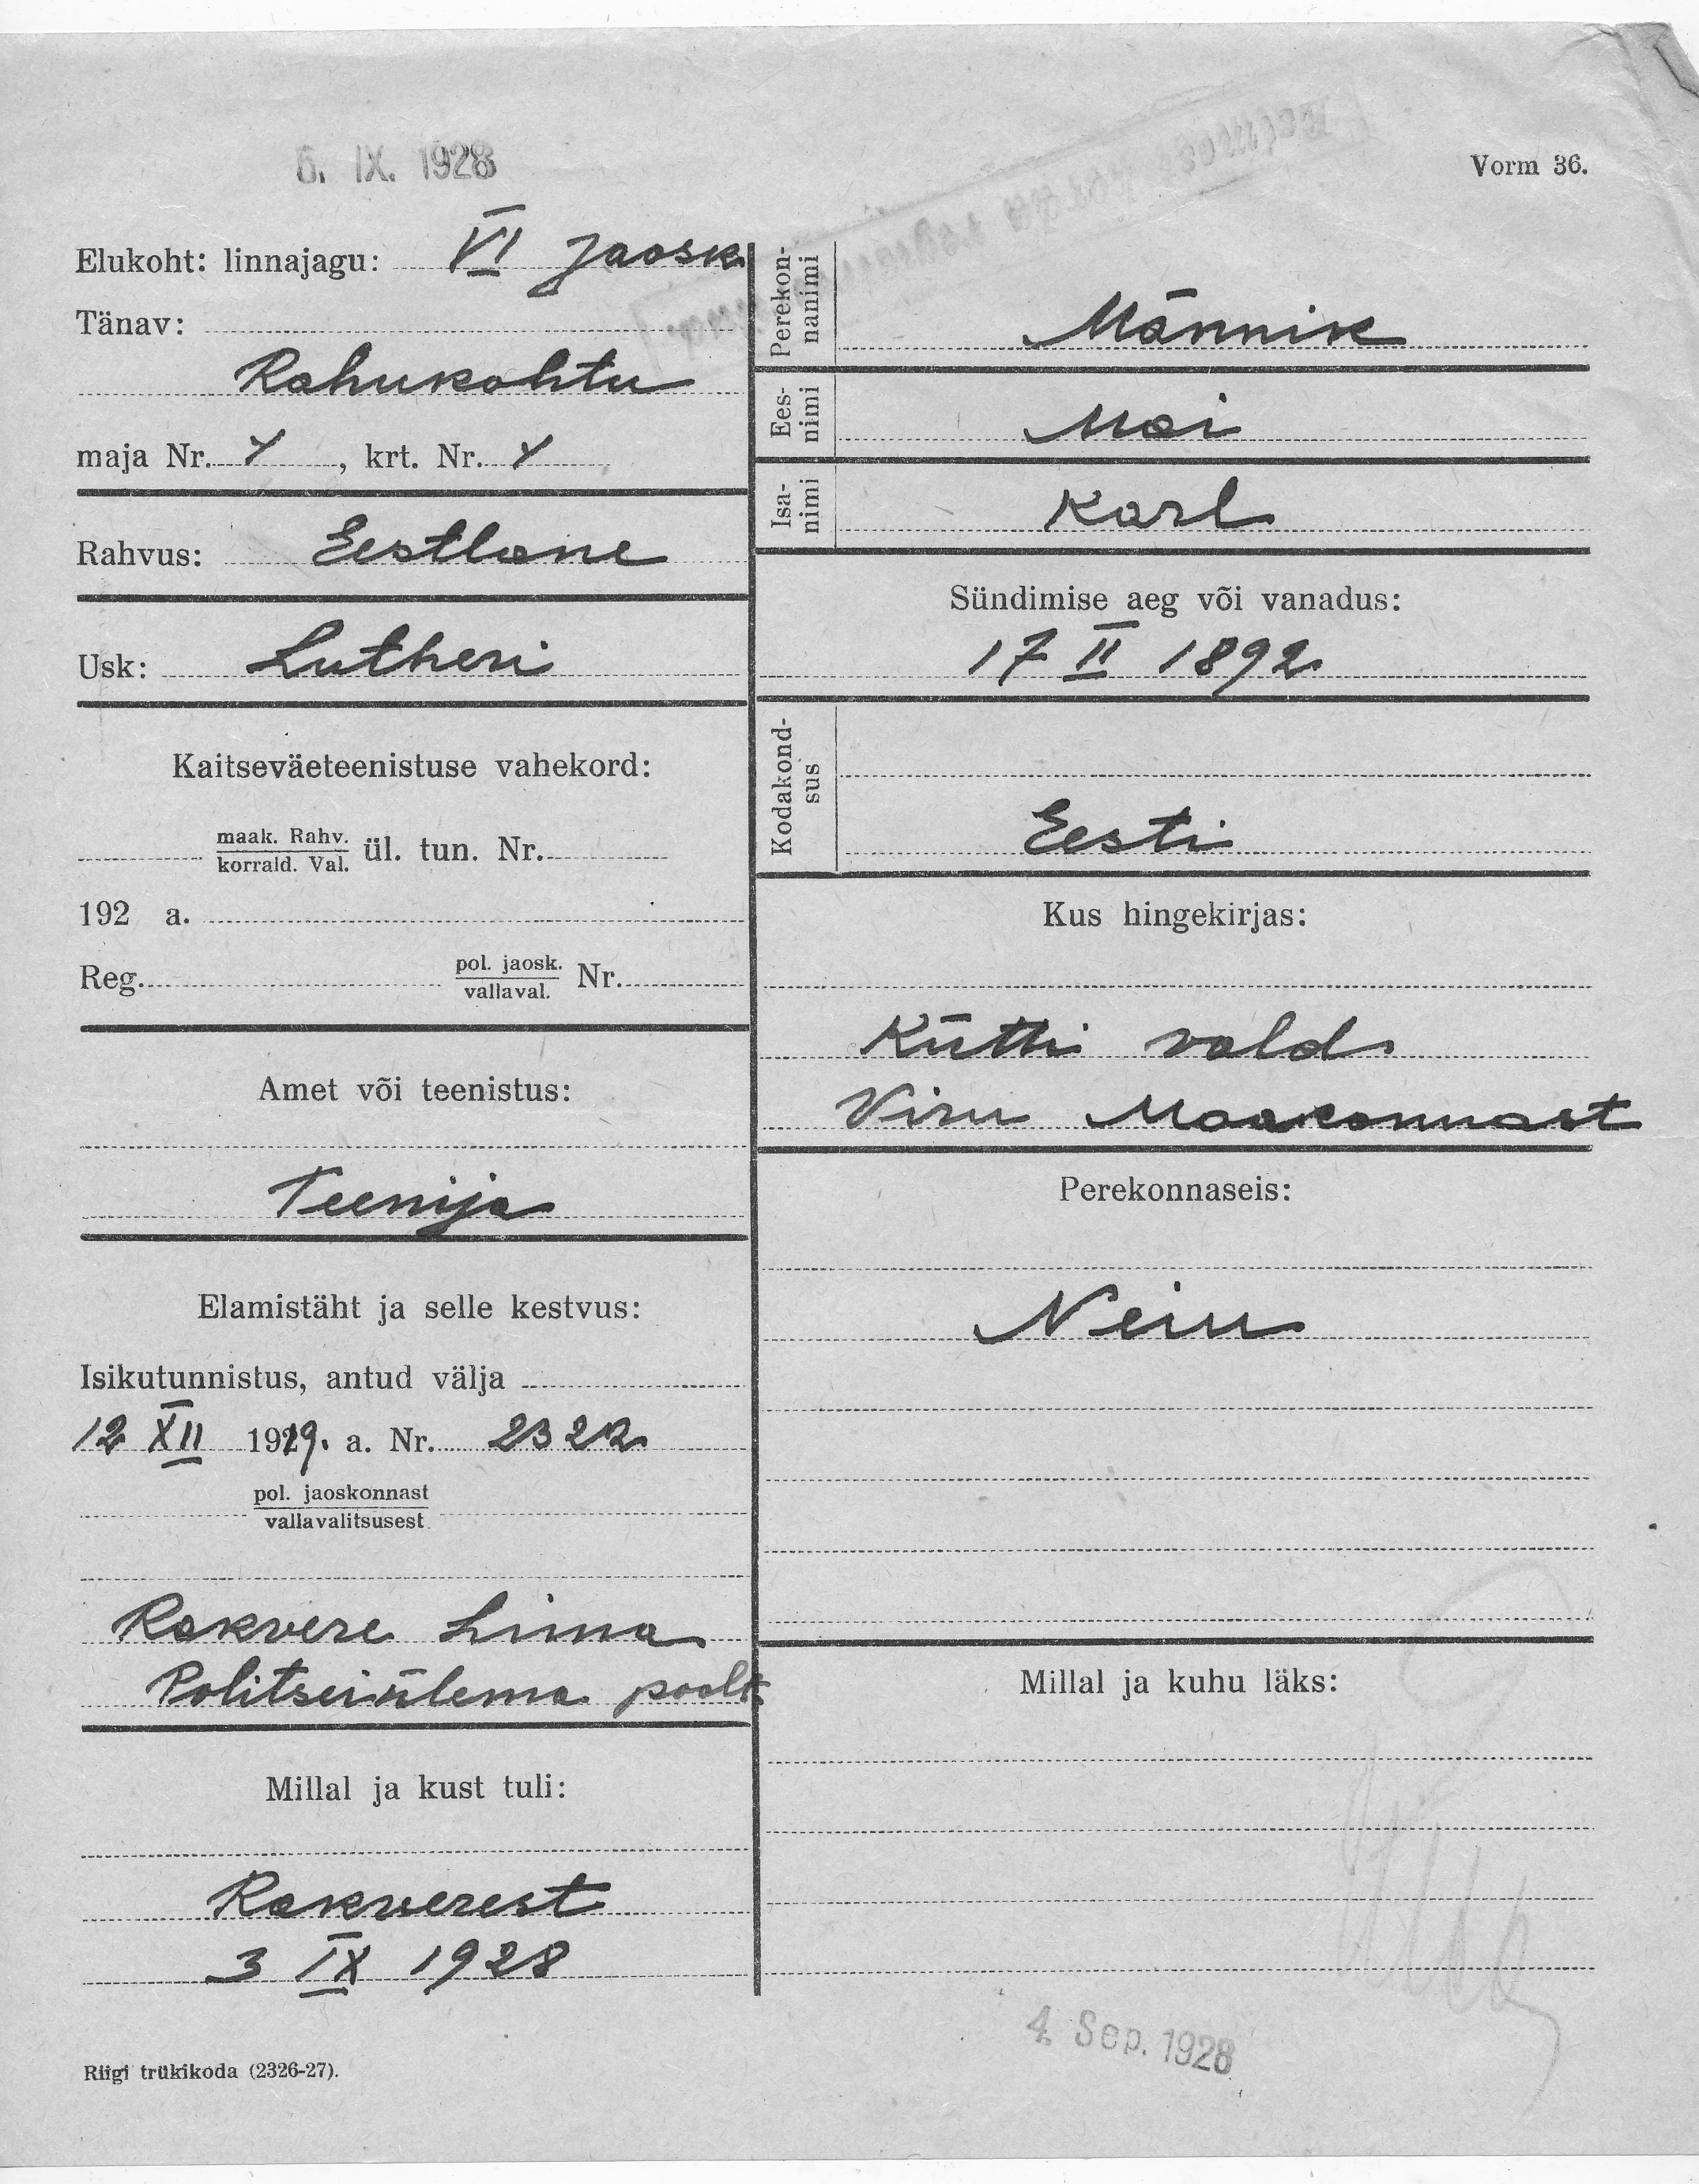 5. IX. 1928
Vorm 36.
Elukoht: linnajagu: VI Jaosk.
Tänav:
Rahukohtu
maja Nr. 4, krt. Nr. 4
Rahvus: Eestlane
Usk: Lutheri
Kaitseväeteenistuse vahekord:
maak. Rahv.
korrald. Val. ül. tun. Nr.
192 a.
Reg. pol. jaosk.
vallaval. Nr.
Amet või teenistus:
Teenija
Elamistäht ja selle kestvus:
Isikutunnistus, antud välja
12 XII 1919. a. Nr. 2322
pol. jaoskonnast
vallavalitsusest
Rakvere Linna
Politseiülema poolt
Millal ja kust tuli:
Rakverest
3 IX 1928
Riigi trükikoda (2326-27).
Perekon-
nanimi
Männik
Ees-
nimi
Mai
Isa-
nimi
Karl
Sündimise aeg või vanadus:
17 II 1892
Kodakond-
sus
Eesti
Kus hingekirjas:
Kütti vald
Viru Maakonnast
Perekonnaseis:
Neiu
Millal ja kuhu läks:
4. Sep. 1928